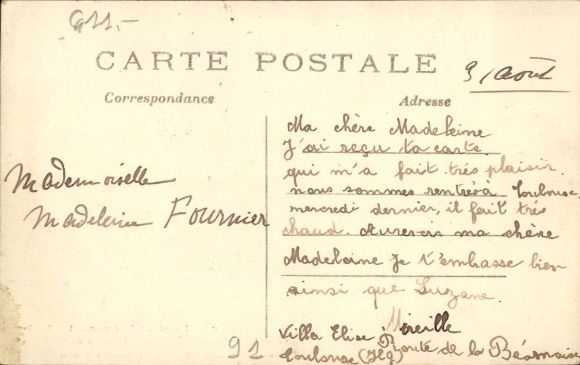 G11.-
CARTE POSTALE
9 / Août
Correspondance
Adresse
Mademoiselle
Madeleine Fournier
Ma chère Madeleine
J'ai reçu ta carte
qui m'a fait très plaisir.
nous sommes rentrés a Toulouse
mercredi dernier, il fait très
chaud. Aurevoir ma chère
Madeleine je t'embrasse bien
ainsi que Suzane.
Mireille
Villa Elise Route de la Béarnaise
Toulouse (Hg)
91